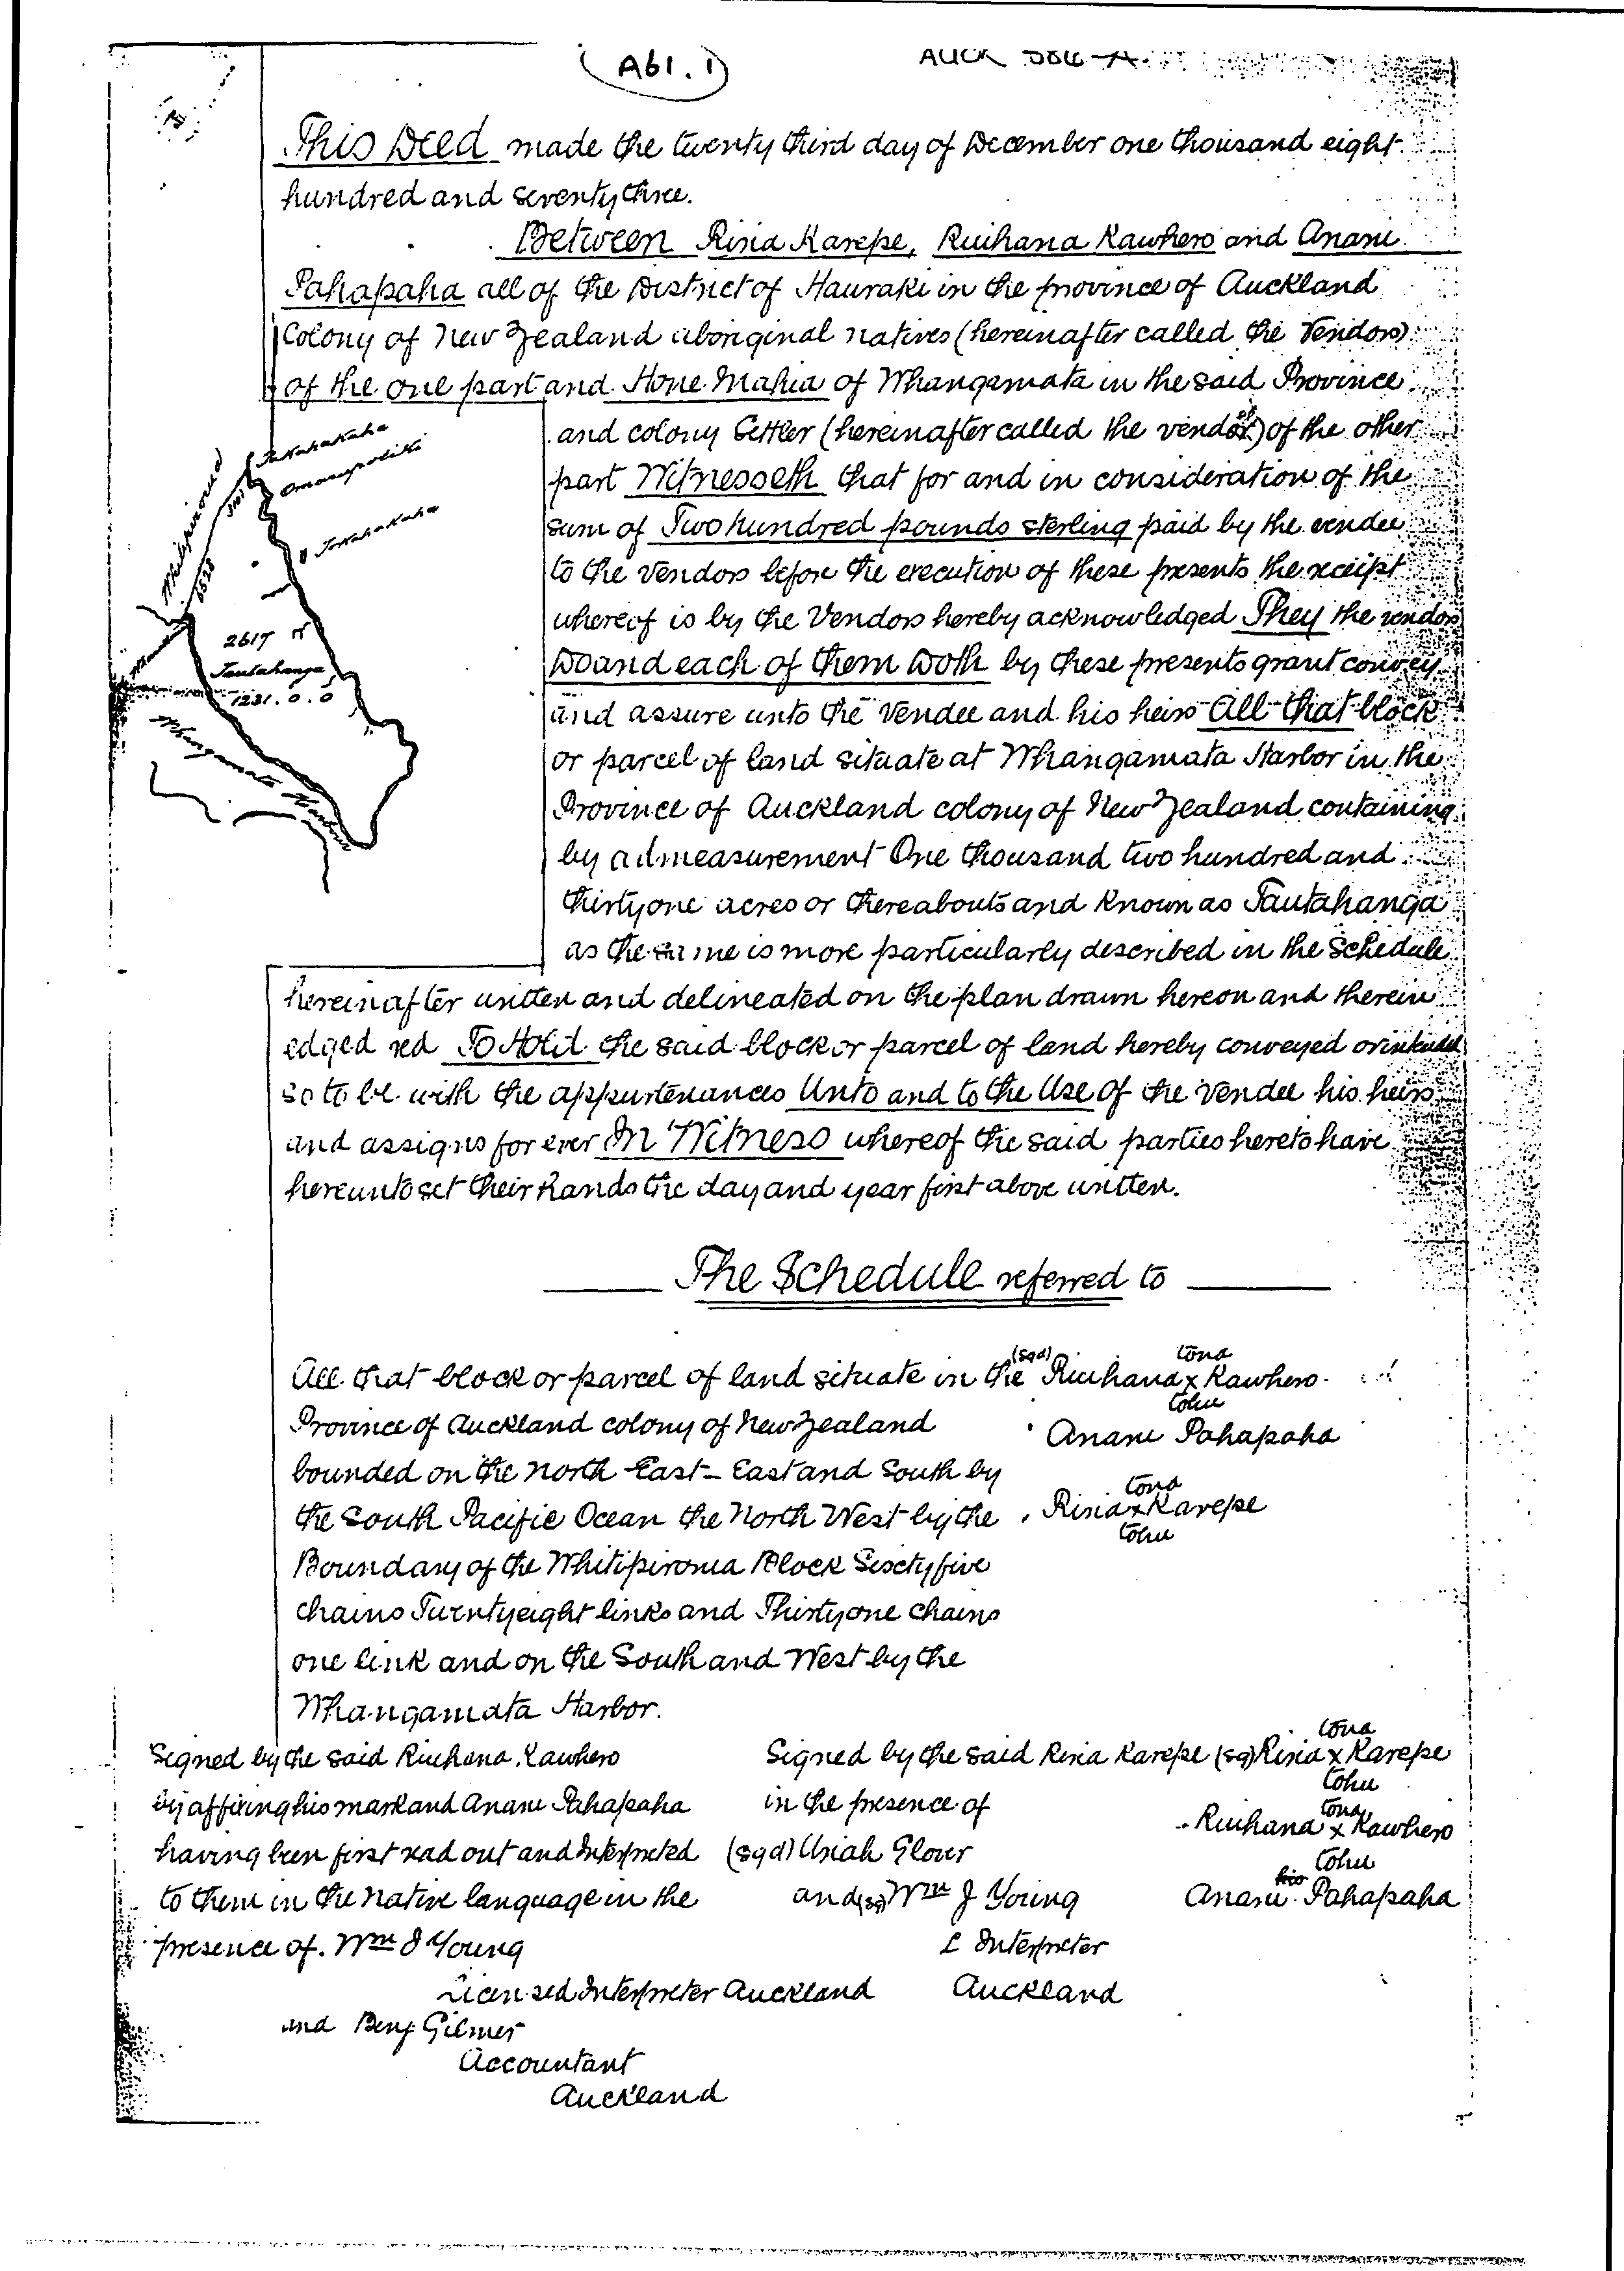 (A61.1)
AUCK
This Deed made the twenty third day of December one thousand eight
hundred and seventy three.
Between Riria Karepe, Ruihana Kawhero and Anani
Pahapaha all of the District of Hauraki in the province of Auckland
Colony of New Zealand aboriginal natives (hereinafter called the Vendors)
of the one part and Hone Mahia of Whangamata in the said Province
and colony Settler (hereinafter called the vendee) of the other
part Witnesseth that for and in consideration of the
sum of Two hundred pounds sterling paid by the vendee
to the vendors before the execution of these presents the receipt
whereof is by the Vendors hereby acknowledged They the vendors
Do and each of them Doth by these presents grant convey
and assure unto the Vendee and his heirs All that block
or parcel of land situate at Whangamata Harbor in the
Province of Auckland colony of New Zealand containing
by admeasurement One thousand two hundred and
thirty one acres or thereabouts and known as Tautahanga
as the same is more particularly described in the Schedule
hereinafter written and delineated on the plan drawn hereon and therein
edged red To Hold the said block or parcel of land hereby conveyed or intended
so to be with the appurtenances Unto and to the Use of the vendee his heirs
and assigns for ever In Witness whereof the said parties hereto have
hereunto set their hands the day and year first above written.
Whitipirorua
3101
6528
Omaropotiki
2617
Tautahanga
1231.0.0
Whangamata Harbour
The Schedule referred to
All that block or parcel of land situate in the
Province of Auckland colony of New Zealand
bounded on the North East - East and South by
the South Pacific Ocean the North West by the
Boundary of the Whitipirorua Block Sixty five
chains Twenty eight links and Thirty one chains
one link and on the South and West by the
Whangamata Harbor.
(sgd) Ruihana x Kawhero
tona
tohu
Anani Pahapaha
tona
Riria x Karepe
tohu
Signed by the said Ruihana Kawhero
by affixing his mark and Anani Pahapaha
having been first read out and Interpreted
to them in the Native language in the
presence of. Wm J Young
Licensed Interpreter Auckland
and Benj Gilmer
Accountant
Auckland
Signed by the said Riria Karepe
in the presence of
(sgd) Uriah Glover
and (sg) Wm J Young
L Interpreter
Auckland
tona
(sg) Riria x Karepe
tohu
tona
Ruihana x Kawhero
tohu
his
Anani Pahapaha